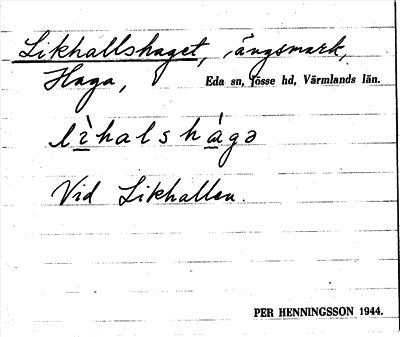 Likhallshaget, ängsmark,
Haga, Eda sn, Jösse hd, Värmlands län.
lìhalshàgə
Vid Likhallen.
PER HENNINGSSON 1944.